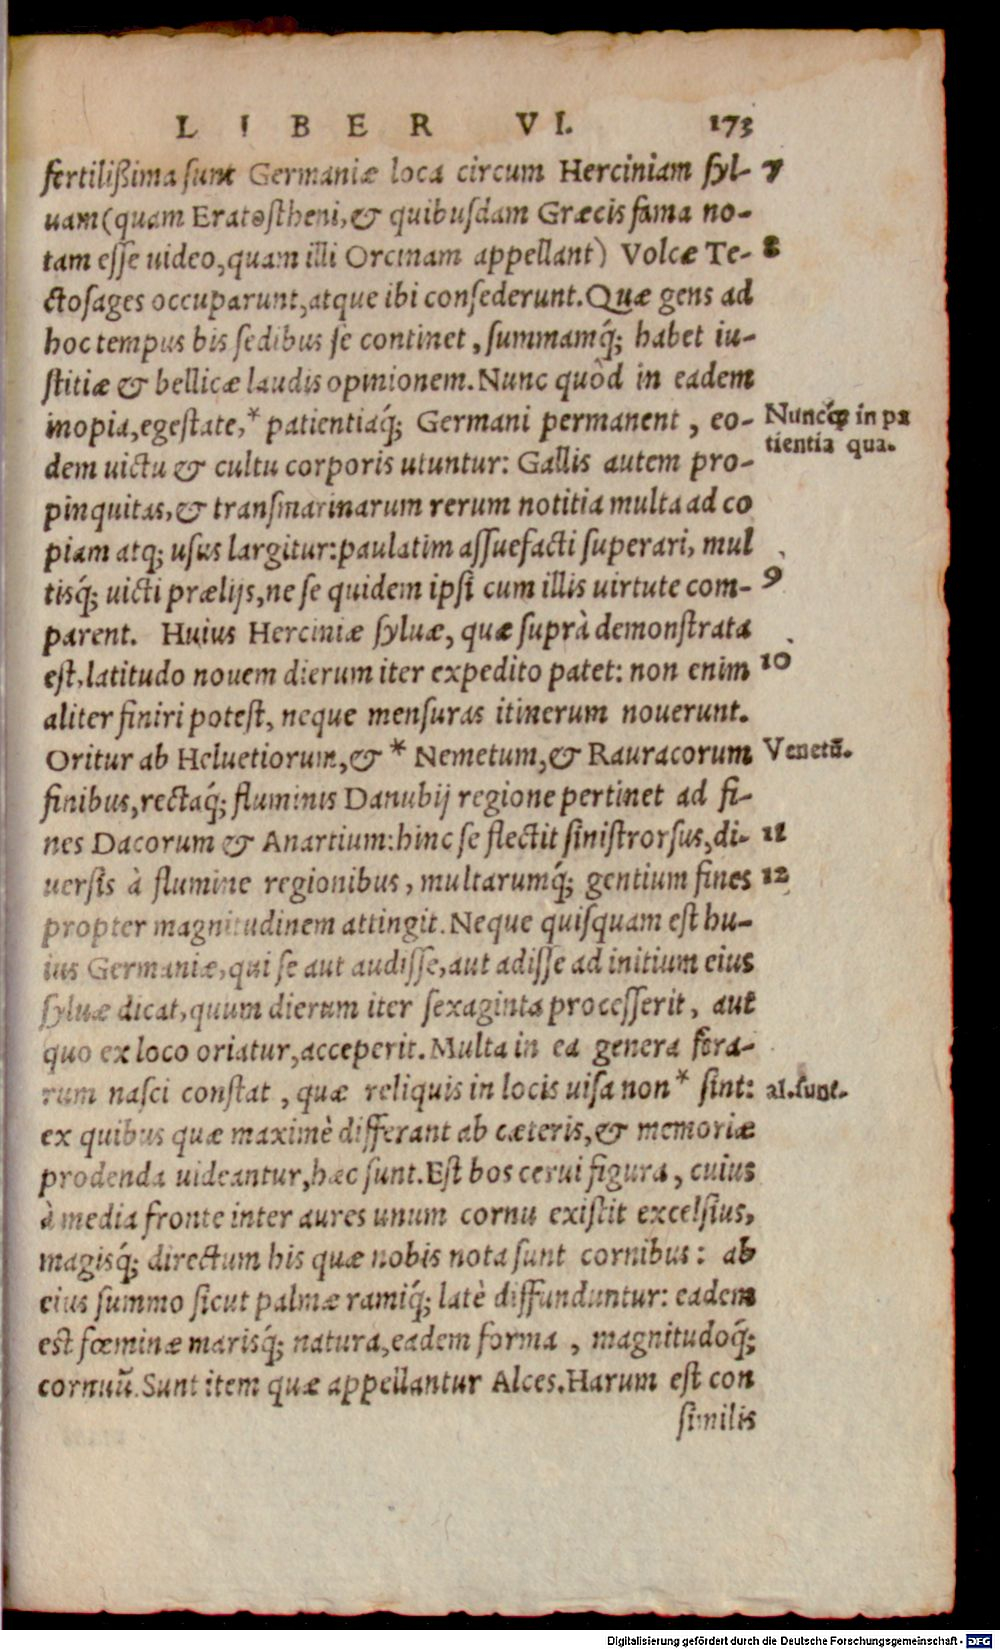 LIBER VI. 173
fertilißima sunt Germaniæ loca circum Herciniam syl- 7
uam (quam Eratostheni, & quibusdam Græcis fama no-
tam esse uideo, quam illi Orcinam appellant) Volcæ Te- 8
ctosages occuparunt, atque ibi consederunt. Quæ gens ad
hoc tempus his sedibus se continet, summamq́; habet iu-
stitiæ & bellicæ laudis opinionem. Nunc quòd in eadem
inopia, egestate, * patientiaq́; Germani permanent, eo-
Nuncq́; in pa
tientia qua.
dem uictu & cultu corporis utuntur: Gallis autem pro-
pinquitas, & transmarinarum rerum notitia multa ad co
piam atq; usus largitur: paulatim assuefacti superari, mul
tisq́; uicti prælijs, ne se quidem ipsi cum illis uirtute com- 9
parent. Huius Herciniæ syluæ, quæ suprà demonstrata
est, latitudo nouem dierum iter expedito patet: non enim 10
aliter finiri potest, neque mensuras itinerum nouerunt.
Oritur ab Heluetiorum, & * Nemetum, & Rauracorum Venetū.
finibus, rectaq́; fluminis Danubij regione pertinet ad fi-
nes Dacorum & Anartium: hinc se flectit sinistrorsus, di- 11
uersis à flumine regionibus, multarumq́; gentium fines 12
propter magnitudinem attingit. Neque quisquam est hu-
ius Germaniæ, qui se aut audisse, aut adisse ad initium eius
syluæ dicat, quum dierum iter sexaginta processerit, aut
quo ex loco oriatur, acceperit. Multa in ea genera fera-
rum nasci constat, quæ reliquis in locis uisa non * sint: al. sunt.
ex quibus quæ maximè differant ab cæteris, & memoriæ
prodenda uideantur, hæc sunt. Est bos cerui figura, cuius
à media fronte inter aures unum cornu existit excelsius,
magisq́; directum his quæ nobis nota sunt cornibus: ab
eius summo sicut palmæ ramiq́; latè diffunduntur: eadem
est fœminæ marisq́; natura, eadem forma, magnitudoq́;
cornuū. Sunt item quæ appellantur Alces. Harum est con
similis
Digitalisierung gefördert durch die Deutsche Forschungsgemeinschaft - DFG